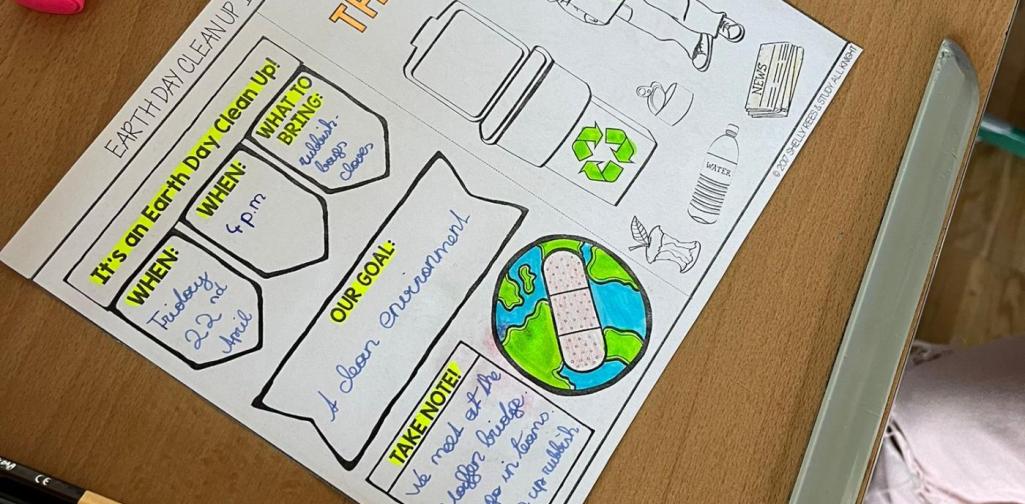 EARTH DAY CLEAN UP
TH
It's an Earth Day Clean Up!
WHEN:
Friday
22nd
April
WHEN:
4 p.m
WHAT TO
BRING:
rubbish-
bags
cloves
OUR GOAL:
A clean environment
TAKE NOTE!
We meet at the
bridge
go in teams.
up rubbish
NEWS
WATER
© 2017 SHELLY REES & STUDY ALL KNIGHT
CE